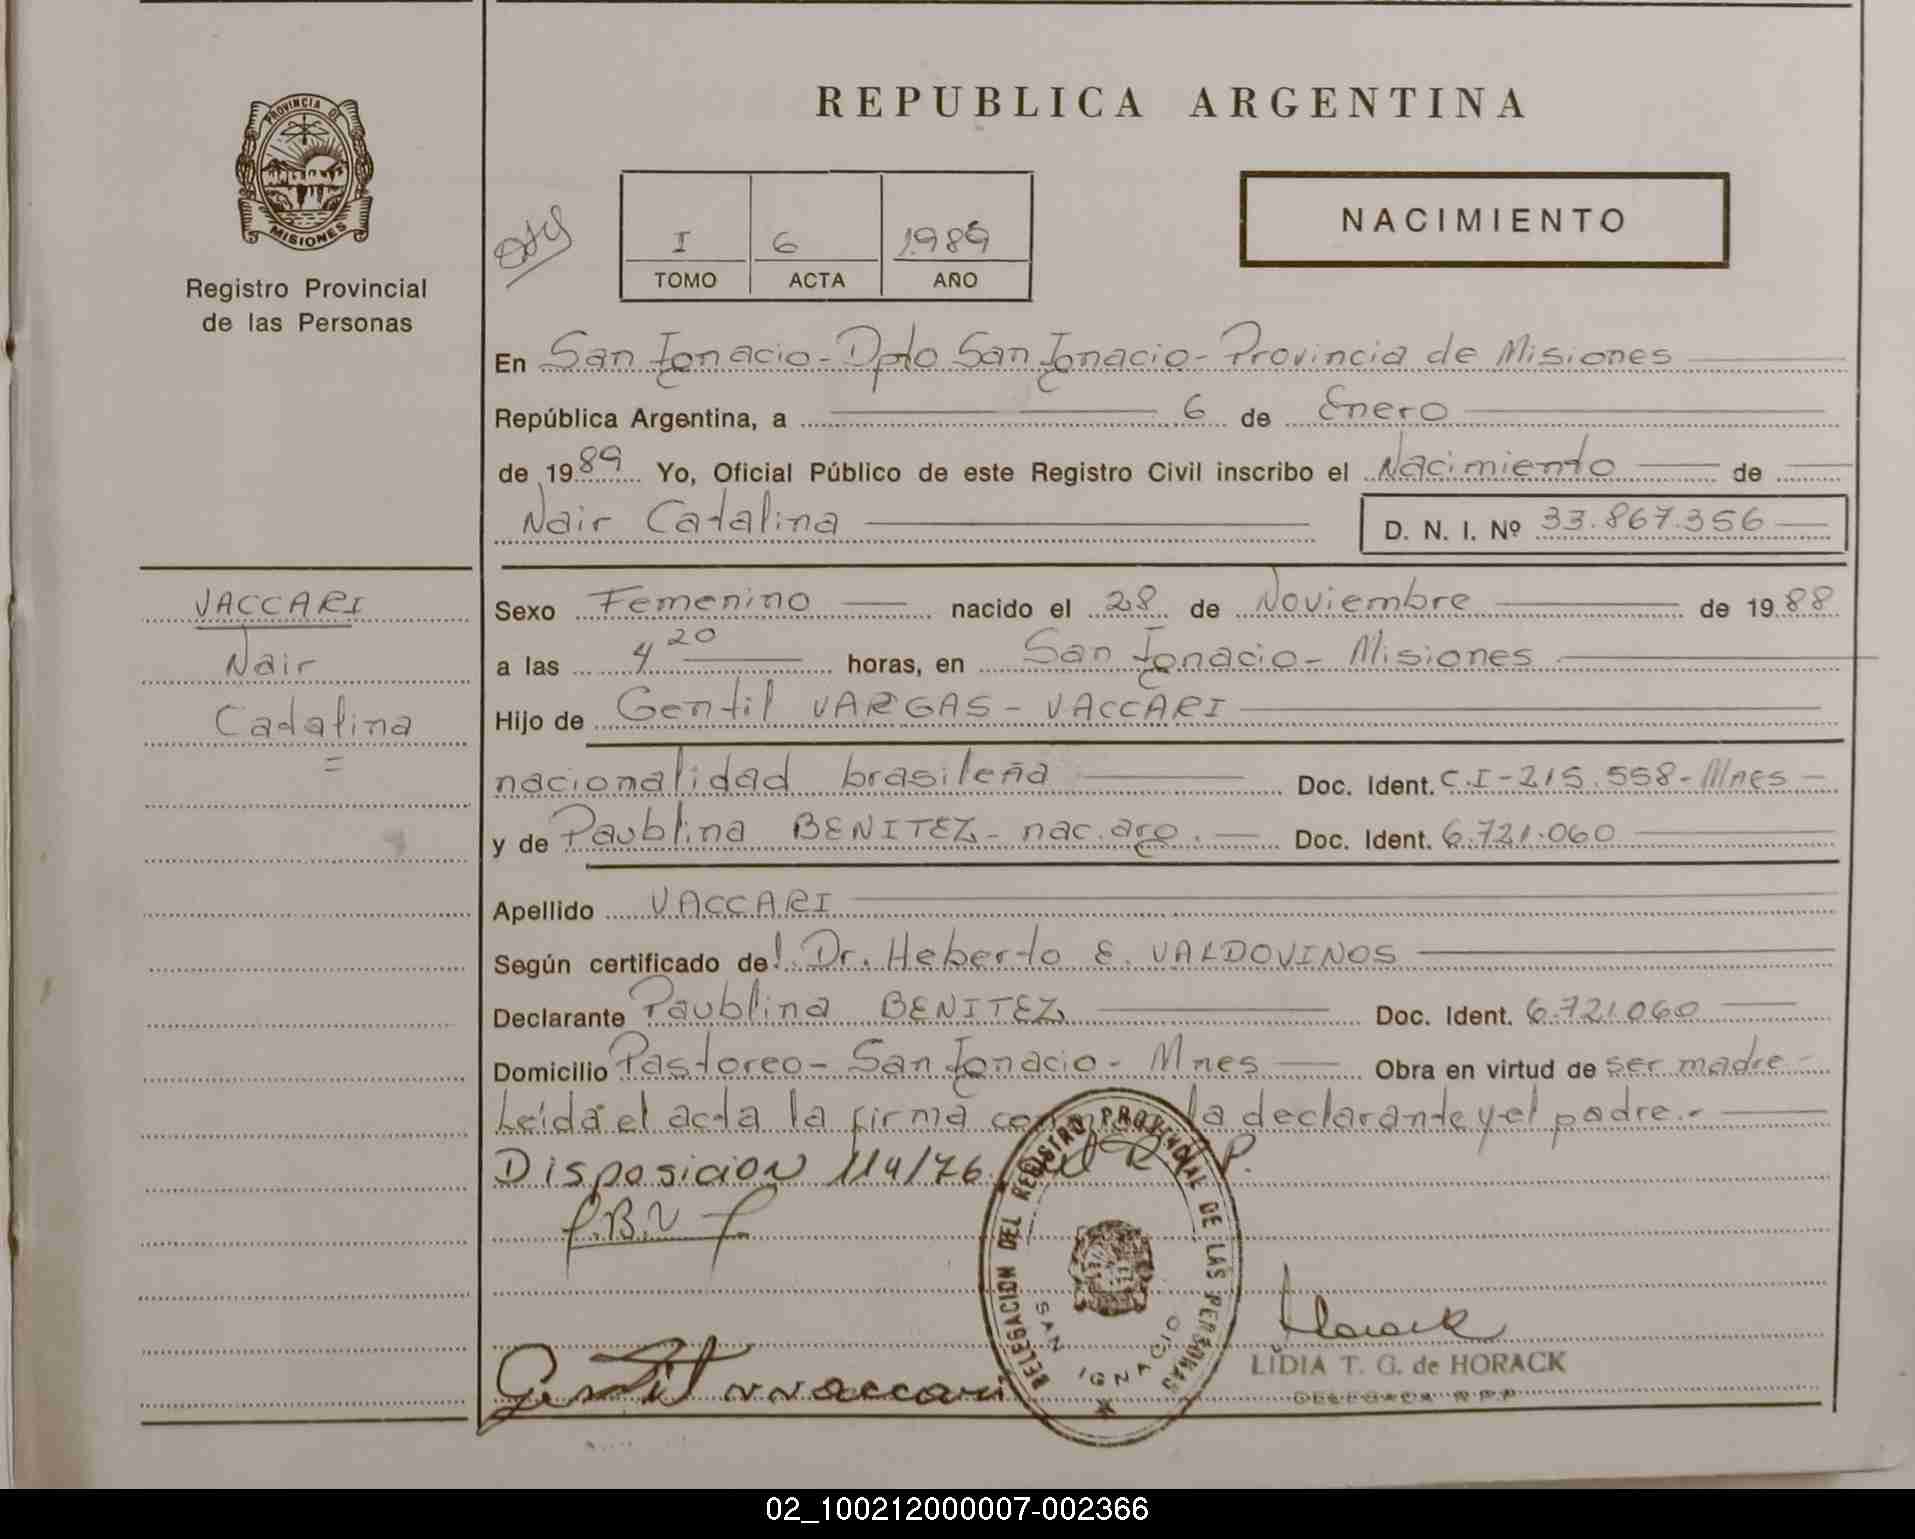 REPUBLICA ARGENTINA
PROVINCIA DE
MISIONES
Registro Provincial
de las Personas
I 6 1989
TOMO ACTA AÑO
NACIMIENTO
En San Ignacio - Dpto San Ignacio - Provincia de Misiones
República Argentina, a 6 de Enero
de 1989 Yo, Oficial Público de este Registro Civil inscribo el Nacimiento de
Nair Catalina D. N. I. Nº 33.867.356
VACCARI
Nair
Catalina
Sexo Femenino nacido el 28 de Noviembre de 1988
a las 4 20 horas, en San Ignacio - Misiones
Hijo de Gentil VARGAS - VACCARI
nacionalidad brasileña Doc. Ident. C.I - 215.558 - Mnes -
y de Paublina BENITEZ - nac. arg. - Doc. Ident. 6.721.060
Apellido VACCARI
Según certificado del Dr. Heberto E. VALDOVINOS
Declarante Paublina BENITEZ Doc. Ident. 6.721.060
Domicilio Pastoreo - San Ignacio - Mnes Obra en virtud de ser madre -
Leída el acta la firma la declarante y el padre.-
Disposicion 114/76 P.
DELEGACION DEL REGISTRO PROVINCIAL DE LAS PERSONAS
SAN IGNACIO
Horack
LIDIA T. G. de HORACK
DELEGADA R P P
Gentil v vaccari
02_100212000007-002366